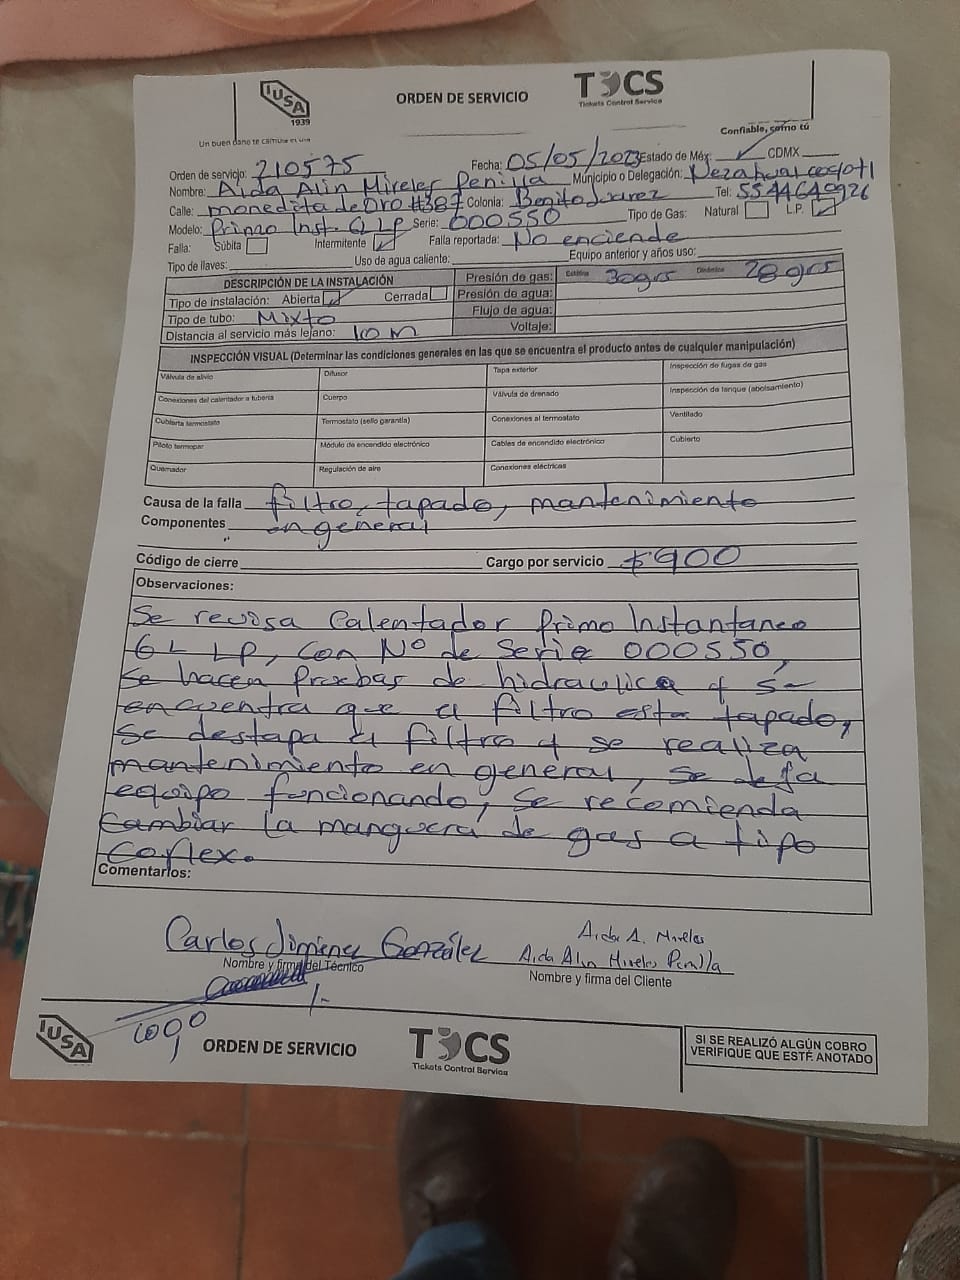 IUSA
1939
ORDEN DE SERVICIO
TCS
Tickets Control Service
Un buen
Confiable, como tú
Orden de servicio: 210575 Fecha: 05/05/2023 Estado de Méx: CDMX
Nombre: Aida Alin Mireles Penilla Municipio o Delegación: Nezahualcoyotl
Calle: monedita de oro #387 Colonia: Benito Juarez Tel: 5544649926
Modelo: Primo Inst. 6L LP Serie: 000550 Tipo de Gas: Natural L.P.
Falla: Súbita Intermitente Falla reportada: No enciende
Tipo de llaves: Uso de agua caliente: Equipo anterior y años uso:
DESCRIPCIÓN DE LA INSTALACIÓN Presión de gas: Estática 30grs Dinámica 28grs
Tipo de instalación: Abierta Cerrada Presión de agua:
Tipo de tubo: Mixto Flujo de agua:
Distancia al servicio más lejano: 10 m Voltaje:
INSPECCIÓN VISUAL (Determinar las condiciones generales en las que se encuentra el producto antes de cualquier manipulación)
Válvula de alivio Difusor Tapa exterior Inspección de fugas de gas
Conexiones del calentador a tubería Cuerpo Válvula de drenado Inspección de tanque (abolsamiento)
Cubierta termostato Termostato (sello garantía) Conexiones al termostato Ventilado
Piloto termopar Módulo de encendido electrónico Cables de encendido electrónico Cubierto
Quemador Regulación de aire Conexiones eléctricas
Causa de la falla filtro, tapado, mantenimiento
Componentes en general
Código de cierre Cargo por servicio $900
Observaciones:
Se revisa Calentador Primo Instantaneo
6L LP, con N° de Serie 000550,
Se hacen Pruebas de hidraulica y se
encuentra que el filtro esta tapado,
Se destapa el filtro y se realiza
mantenimiento en general, se deja
equipo funcionando, se recomienda
cambiar la manguera de gas a tipo
coflex.
Comentarios:
Carlos Jimenez González
Aida A. Mireles
Aida Alin Mireles Penilla
Nombre y firma del Técnico
Nombre y firma del Cliente
IUSA
ORDEN DE SERVICIO
TCS
Tickets Control Service
SI SE REALIZÓ ALGÚN COBRO
VERIFIQUE QUE ESTÉ ANOTADO